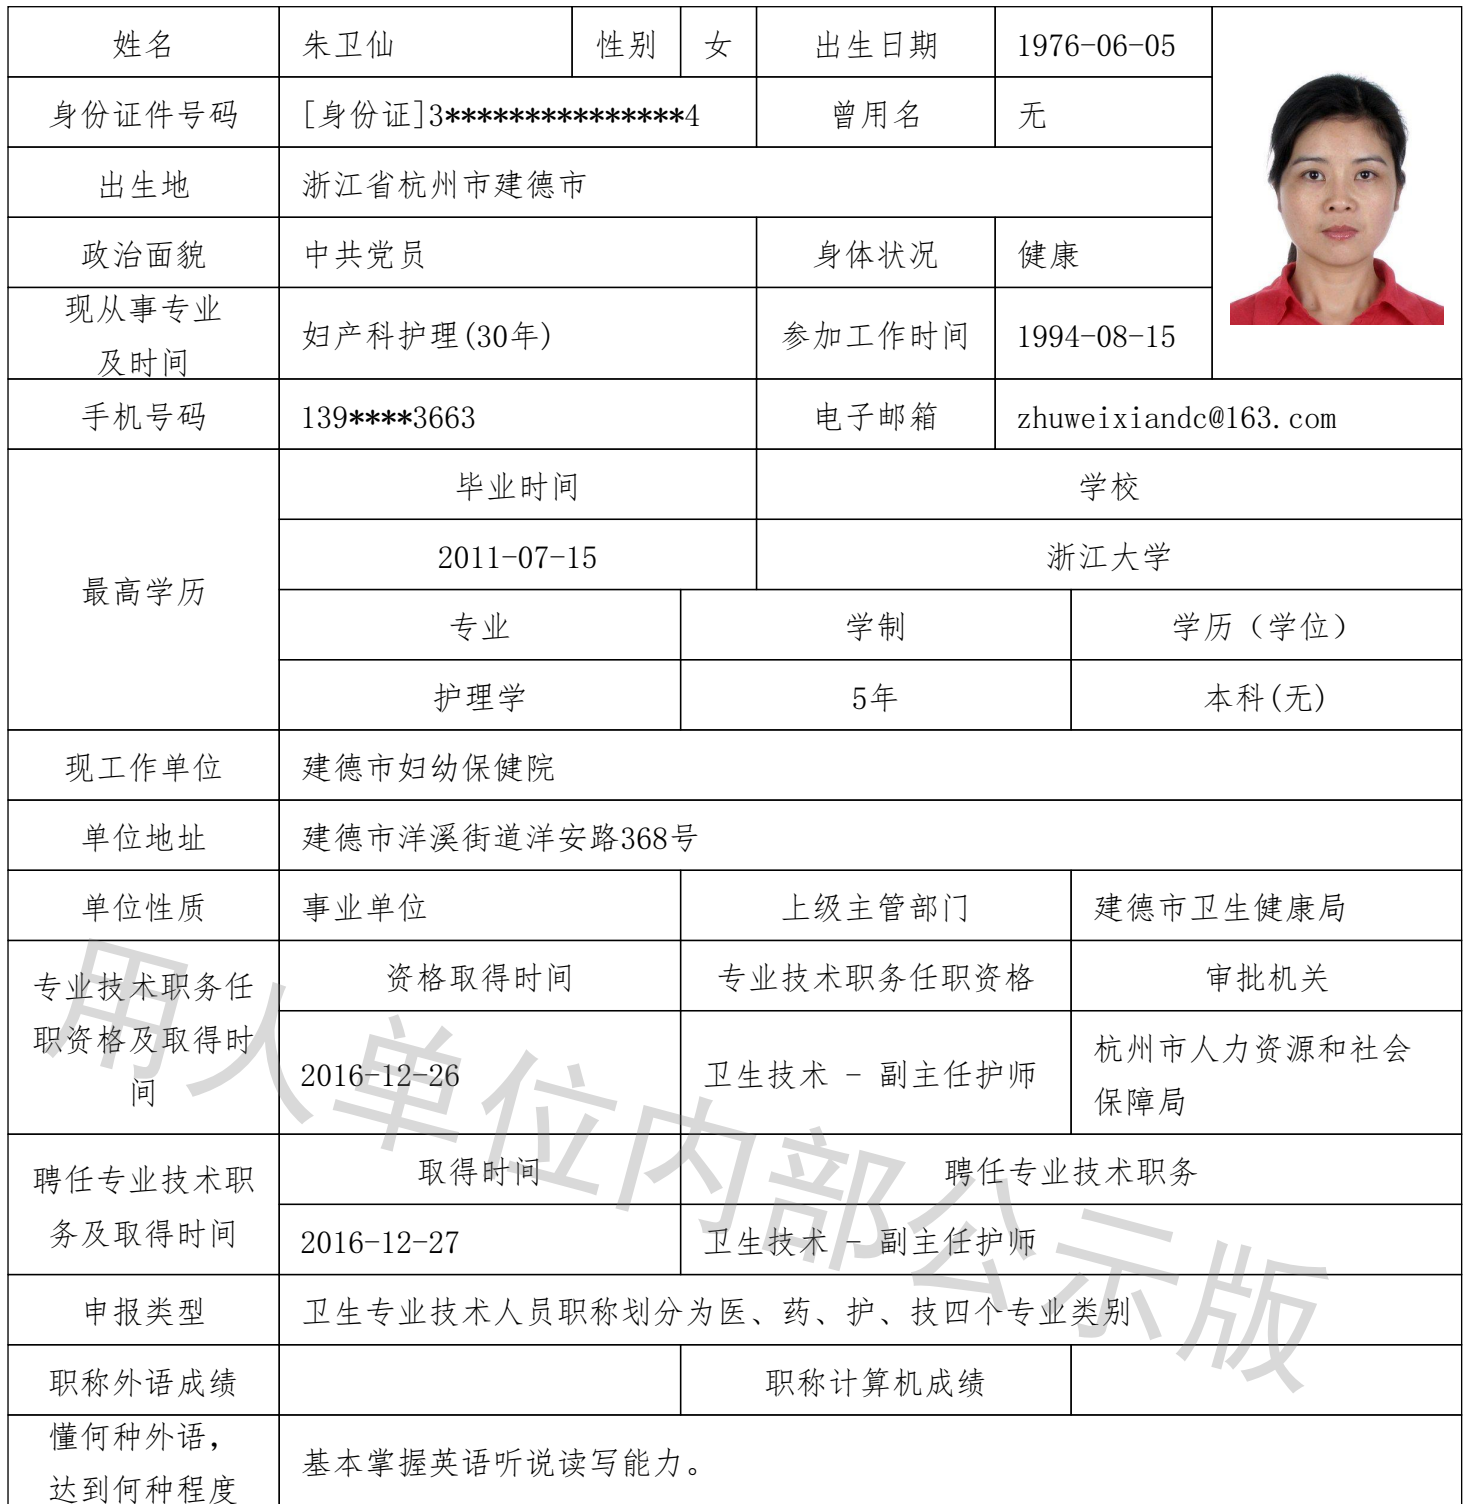 姓名 朱卫仙 性别 女 出生日期 1976-06-05
身份证件号码 [身份证]3***************4 曾用名 无
出生地 浙江省杭州市建德市
政治面貌 中共党员 身体状况 健康
现从事专业
及时间 妇产科护理(30年) 参加工作时间 1994-08-15
手机号码 139****3663 电子邮箱 zhuweixiandc@163.com
最高学历
毕业时间 学校
2011-07-15 浙江大学
专业 学制 学历（学位）
护理学 5年 本科(无)
现工作单位 建德市妇幼保健院
单位地址 建德市洋溪街道洋安路368号
单位性质 事业单位 上级主管部门 建德市卫生健康局
专业技术职务任
职资格及取得时
间
资格取得时间 专业技术职务任职资格 审批机关
2016-12-26 卫生技术 - 副主任护师 杭州市人力资源和社会
保障局
聘任专业技术职
务及取得时间
取得时间 聘任专业技术职务
2016-12-27 卫生技术 - 副主任护师
申报类型 卫生专业技术人员职称划分为医、药、护、技四个专业类别
职称外语成绩 职称计算机成绩
懂何种外语，
达到何种程度 基本掌握英语听说读写能力。
用人单位内部公示版